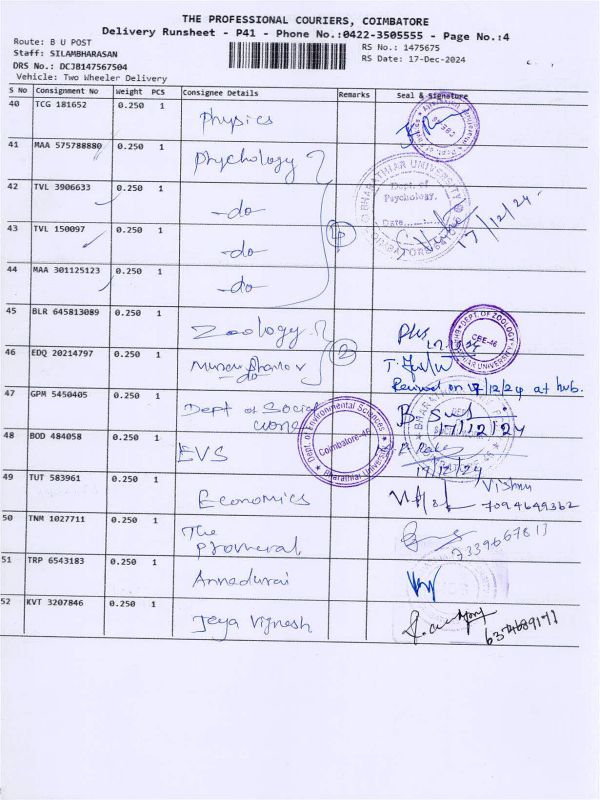 THE PROFESSIONAL COURIERS, COIMBATORE
Delivery Runsheet - P41 - Phone No.:0422-3505555 - Page No.:4
Route: B U POST
Staff: SILAMBHARASAN
DRS No.: DCJ8147567504
Vehicle: Two Wheeler Delivery
RS No.: 1475675
RS Date: 17-Dec-2024
S No Consignment No Weight PCS Consignee Details Remarks Seal & Signature
40 TCG 181652 0.250 1 Physics
41 MAA 575788880 0.250 1 Phychology
42 TVL 3906633 0.250 1 -do-
43 TVL 150097 0.250 1 -do-
44 MAA 301125123 0.250 1 -do-
Dept. of
Psychology.
Date
BHARATHIAR UNIVERSITY
17/12/24
45 BLR 645813089 0.250 1 Zoology
DEPT. OF ZOOLOGY
CBE-46
BHARATHIAR UNIVERSITY
46 EDQ 20214797 0.250 1
-do-
2
Received on 17/12/24 at hub.
47 GPM 5450405 0.250 1 Dept of Social
work
17/12/24
48 BOD 484058 0.250 1 EVS
17/12/24
Dept. of Environmental Sciences
Coimbatore-46
Bharathiar University
49 TUT 583961 0.250 1 Economics
Vishnu
7094649362
50 TNM 1027711 0.250 1 The
51 TRP 6543183 0.250 1 Annadurai
52 KVT 3207846 0.250 1 Jeya Vignesh